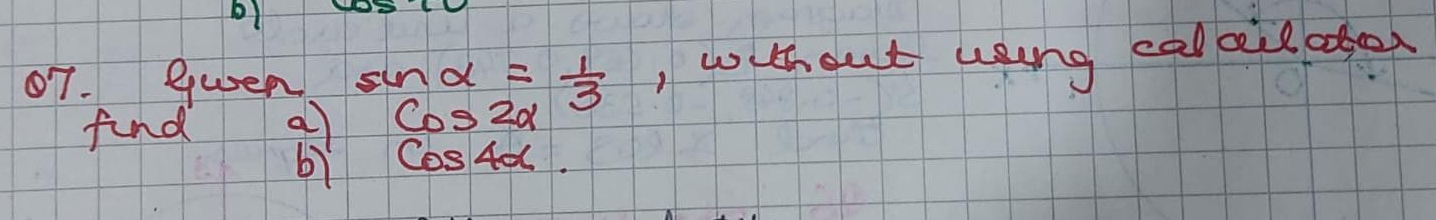 b)
07. Given sin α = 1/3, without using calculator
find a) Cos 2α
b) Cos 4α.